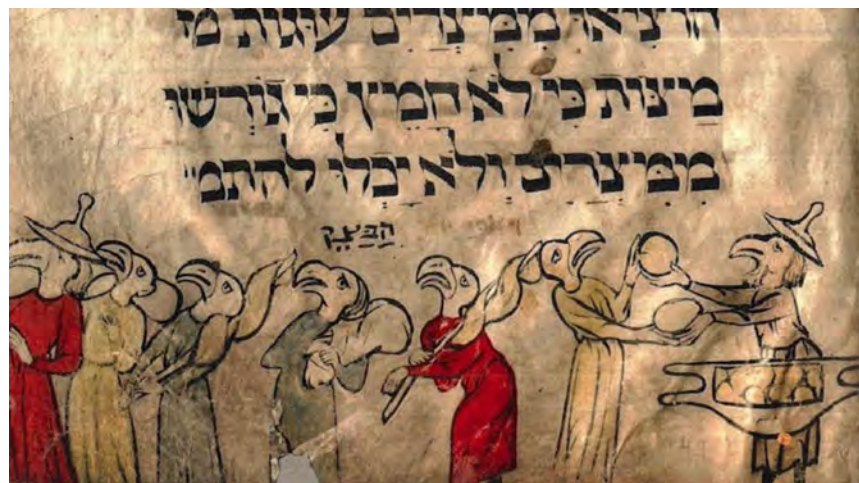 הוציאו ממצרים עוגות מי
מיצות כִּי לֹא חָמֵיץ כִּי גוֹרְשׁוּ
מִמִּצְרַיִם וְלֹא יָכְלוּ לְהִתְמִי
הַבַּצֵק